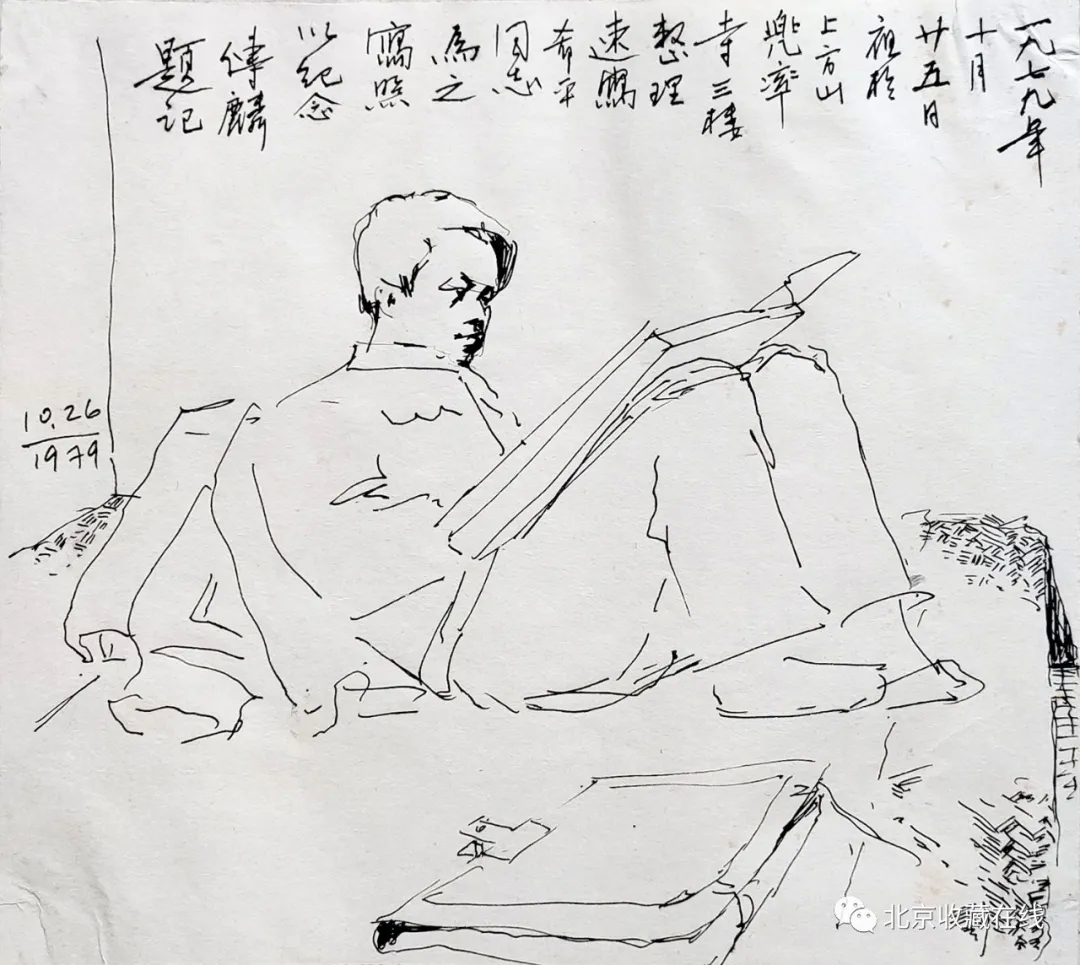 一九七九年
十月
廿五日
於
上方山
兜率
寺三楼
整理
速寫
希平
同志
為之
寫照
以紀念
麟
題记
10.26
1979
北京收藏在线